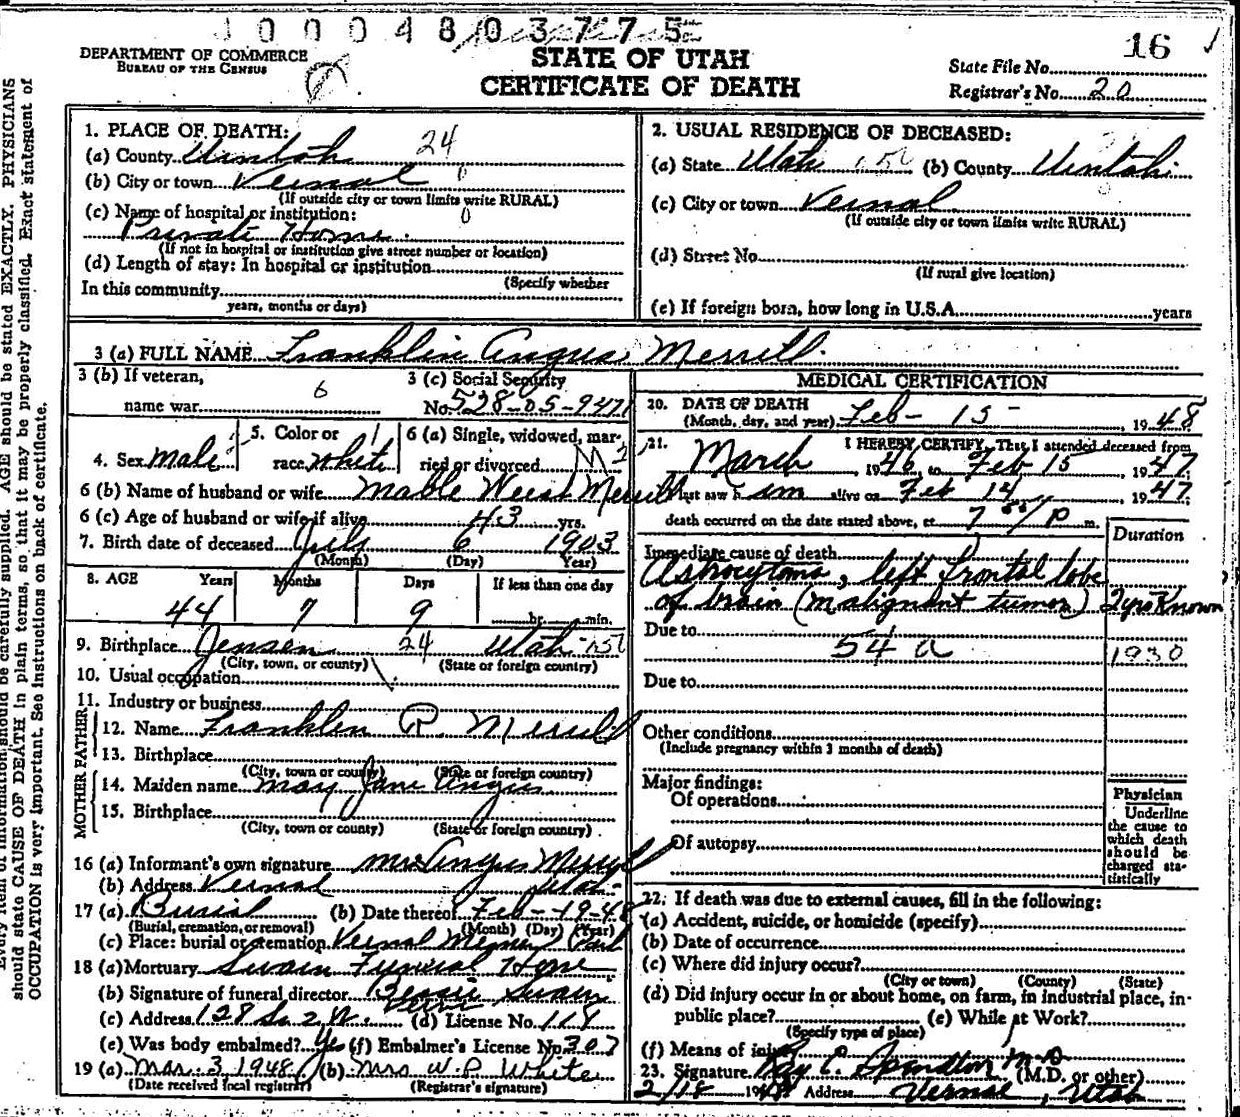 1 0 0 0 4 8 0 3 7 7 5
16
DEPARTMENT OF COMMERCE
BUREAU OF THE CENSUS
STATE OF UTAH
CERTIFICATE OF DEATH
State File No.
Registrar's No. 20
should state CAUSE OF DEATH in plain terms, so that it may be properly classified. Exact statement of
OCCUPATION is very important. See instructions on back of certificate.
1. PLACE OF DEATH:
(a) County Uintah 24
(b) City or town Vernal 0
(If outside city or town limits write RURAL)
(c) Name of hospital or institution: 0
Private Home.
(If not in hospital or institution give street number or location)
(d) Length of stay: In hospital or institution
(Specify whether
In this community
years, months or days)
2. USUAL RESIDENCE OF DECEASED:
(a) State Utah (b) County Uintah
(c) City or town Vernal
(If outside city or town limits write RURAL)
(d) Street No.
(If rural give location)
(e) If foreign born, how long in U.S.A. years
3 (a) FULL NAME Franklin Angus Merrill.
3 (b) If veteran,
name war 6
3 (c) Social Security
No. 528-05-9471
4. Sex Male
5. Color or
race White
6 (a) Single, widowed, mar-
ried or divorced M
6 (b) Name of husband or wife Mable Weist Merrill
6 (c) Age of husband or wife if alive 43 yrs.
7. Birth date of deceased July 6 1903
(Month) (Day) (Year)
8. AGE Years Months Days If less than one day
44 7 9 hr. min.
9. Birthplace Jensen 24 Utah
(City, town, or county) (State or foreign country)
10. Usual occupation
11. Industry or business
FATHER
12. Name Franklin P. Merrill
13. Birthplace
(City, town or county) (State or foreign country)
MOTHER
14. Maiden name Mary Jane Angus
15. Birthplace
(City, town or county) (State or foreign country)
16 (a) Informant's own signature Mrs Angus Merrill
(b) Address Vernal Utah-
17 (a) Burial (b) Date thereof Feb-19-48
(Burial, cremation, or removal) (Month) (Day) (Year)
(c) Place: burial or cremation Vernal Park
18 (a) Mortuary Swain Funeral Home
(b) Signature of funeral director Bessie Swain
(c) Address 128 So 2 W. (d) License No. 114
(e) Was body embalmed? Yes (f) Embalmer's License No. 307
19 (a) Mar. 3, 1948 (b) Mrs W.P. White
(Date received local registrar) (Registrar's signature)
MEDICAL CERTIFICATION
20. DATE OF DEATH
(Month, day, and year) Feb- 15- , 1948
21. I HEREBY CERTIFY, That I attended deceased from
March , 1946, to Feb 15 , 1947
I last saw him alive on Feb 14 , 1947
death occurred on the date stated above, at 7 55/P m.
Duration
Immediate cause of death
Astrocytoma, left frontal lobe
of brain (malignant tumor) 2 yrs Known
Due to
54 a 1930
Due to
Other conditions
(Include pregnancy within 3 months of death)
Major findings:
Of operations
Of autopsy
Physician
Underline
the cause to
which death
should be
charged sta-
tistically
22. If death was due to external causes, fill in the following:
(a) Accident, suicide, or homicide (specify)
(b) Date of occurrence
(c) Where did injury occur?
(City or town) (County) (State)
(d) Did injury occur in or about home, on farm, in industrial place, in-
public place? (e) While at Work?
(Specify type of place)
(f) Means of injury
23. Signature Ray E. Spendlove M.D. (M.D. or other)
2/18 1948 Address Vernal, Utah